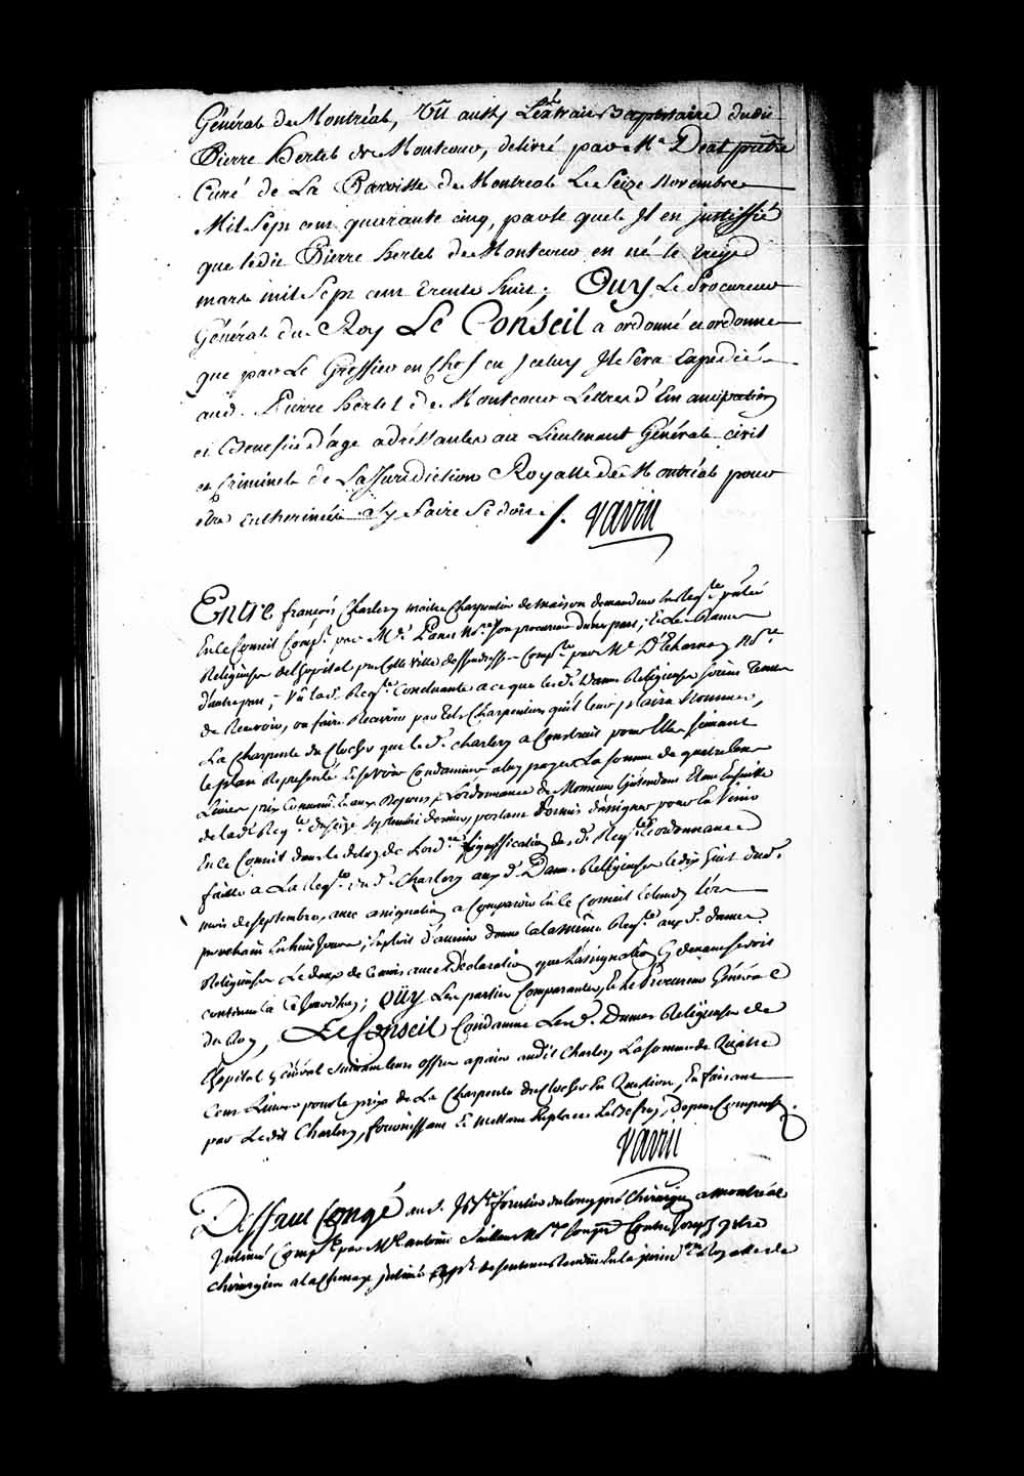 Général de Montréal, Vû aussy L'extrait Baptistaire dudit
Pierre Hertel de Montcour, delivré par Mr Deat prêtre
Curé de La Paroisse de Montreal Le Seize Novembre
Mil Sept cent quarante cinq, par le quel Il en justiffié
que ledit Pierre hertel de Montcour en né le treize
mars mil Sept cent trente huit; Ouy Le Procureur
Général du Roy Le Conseil a ordonné et ordonne
que par Le Greffier en Chef en Iceluy Il sera Expedié
aud. Pierre hertel de Montcour Lettres d'Emancipation
et Benefice d'âge adressantes au Lieutenant Général civil
et Criminel de La Jurisdiction Royalle de Montréal pour
être entherinées a sy faire se doit /. Varin
Entre françois Charlery maitre Charpentier de maison demandeur en Reqte
En le Conseil Compt. par Me. Panet Nore. son procureur d'une part; Et Les Dames
Religieuses de L'hopital de cette Ville deffenderesses Compte par Me D
d'autre part; Vû lad. Reqte Concluante a ce que lesd. Dames Religieuses soient tenues
de Recevoir, ou faire Recevoir par tels Charpentiers qu'il leur plaira Nommer,
La Charpente du Clocher que le d. charlery a Construit pour Elles suivant
le plan Representé Et se voir Condamner a luy payer La somme de quatre Cent
Livres prix Convenû Et aux depens; L'ordonnance de Monsieur L'Intendant Etant Ensuitte
de lad. Reqte. du seize septembre dernier, portant Permis d'assigner pour En Venir
En le Conseil dans le delay de L'ordce. signiffication desd. Reqte Et ordonnance
faitte a La Reqte du d. Charlery aux d. Dames Religieuses le dix huit dud.
mois de septembre, avec assignation a Comparoir En le Conseil
prochain En huit Jours; Exploit d'avenir donné a la même Reqte aux d. dames
Religieuses Le deux de avec Declaration que L'assignation
continuée a ; Oüy Les parties Comparantes, Et Le Procureur Général
du Roy, Le Conseil Condamne Lesd. Dames Religieuses de
L'hopital Général suivant leurs offres a paier audit Charlery La somme de Quatre
Cent Livres pour le prix de La Charpente du Clocher En Question, En faisant
par Ledit Charlery, fournissant Et mettant En place Le Befroy, Depens Compensés.
Varin
Deffaut Congé aud. chirurgien a montréal
Intimé Compt par Me antoine Saillant Nore Contre Joseph
chirurgien a la Chenaye de sentence Rendüe En la Jurisdon Royalle de